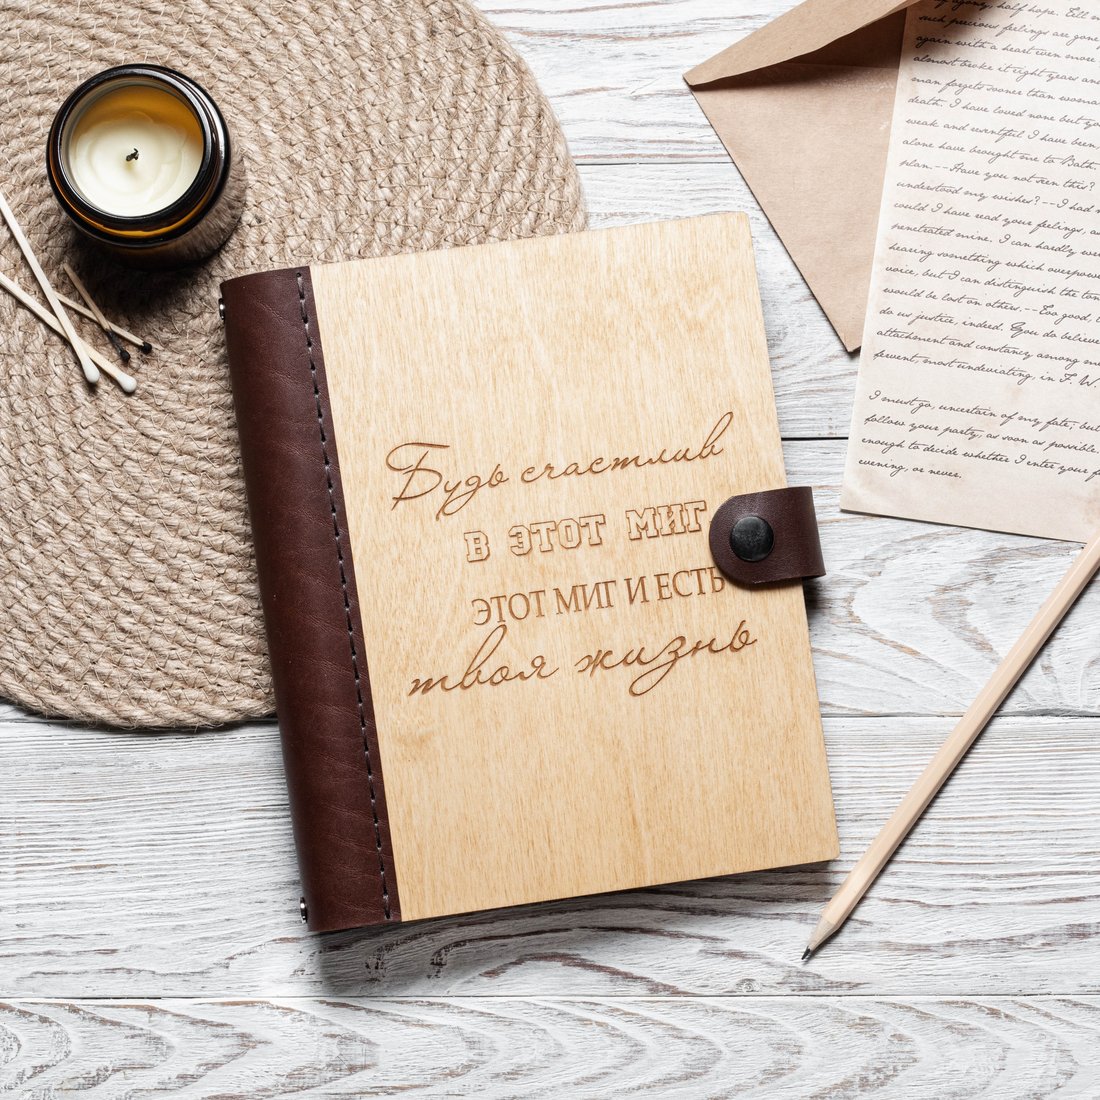 Будь счастлив
В ЭТОТ МИГ
ЭТОТ МИГ И ЕСТЬ
твоя жизнь
agony, half hope. Tell m
such precious feelings are gone
again with a heart even more
almost broke it eight years an
man forgets sooner than woman
death. I have loved none but yo
weak and resentful I have been
alone have brought me to Bath.
plan.--Have you not seen this?
understood my wishes?--I had n
could I have read your feelings, as
penetrated mine. I can hardly wr
hearing something which overpower
voice, but I can distinguish the ton
would be lost on others.--Too good, t
do us justice, indeed. You do believe
attachment and constancy among m
fervent, most undeviating, in F. W.
I must go, uncertain of my fate; but
follow your party, as soon as possible.
enough to decide whether I enter your f
evening, or never.